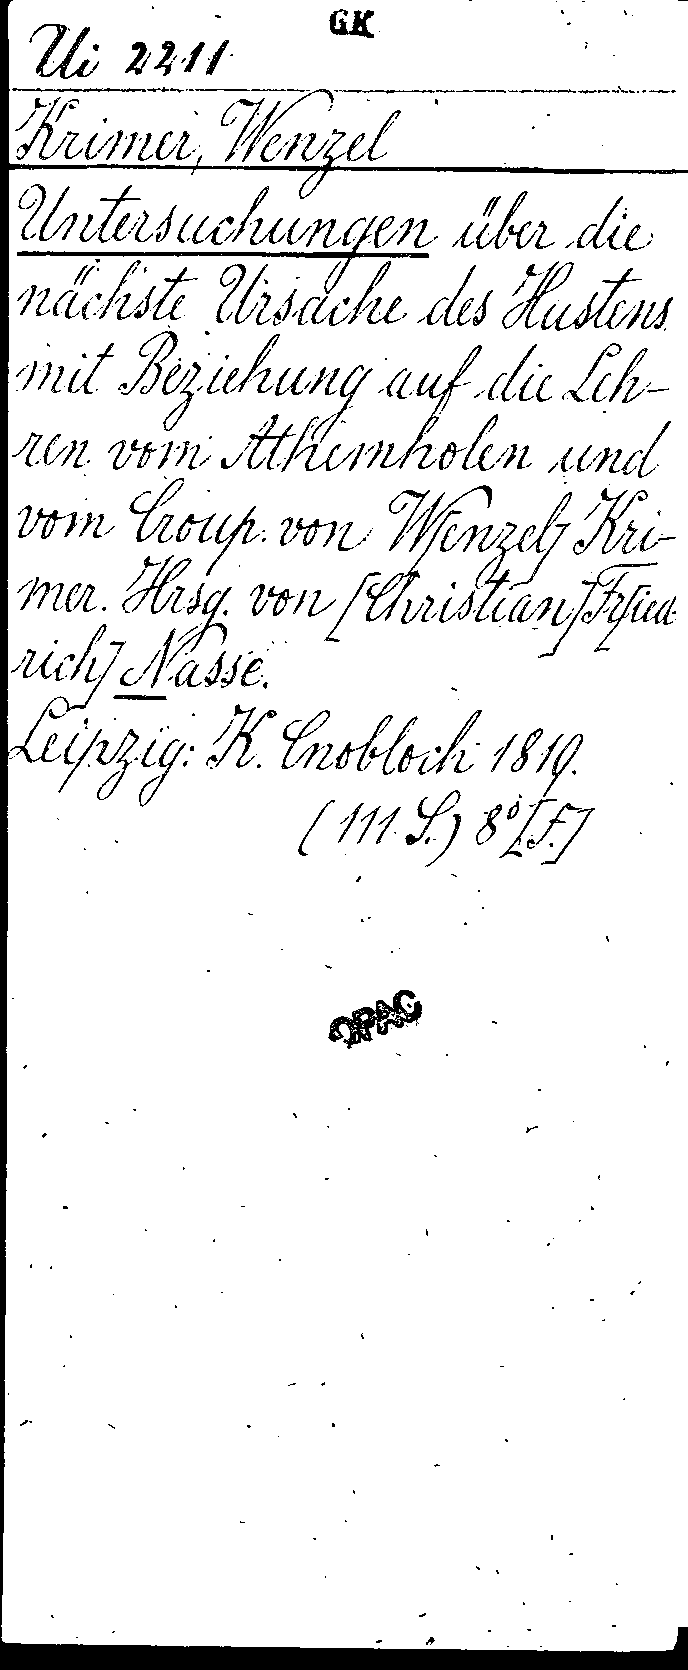 GK
Ui 2211
Krimer, Wenzel
Untersuchungen über die
nächste Ursache des Hustens
mit Beziehung auf die Leh-
ren vom Athemholen und
vom Croup. von W[enzel] Kri-
mer. Hrsg. von [Christian] Fr[ied-
rich] Nasse.
Leipzig: K. Cnobloch 1819.
(111 S.) 8° [F.]
OPAC